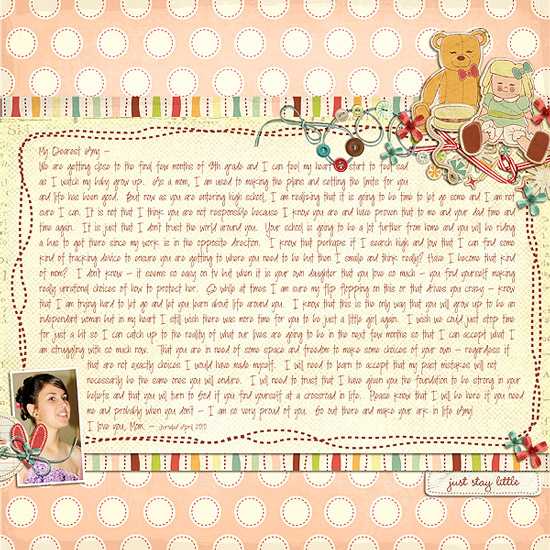 My Dearest Amy –
We are getting close to the final few months of 8th grade and I can feel my heart start to feel sad
as I watch my baby grow up. As a mom, I am used to making the plans and setting the limits for you
and life has been good. But now as you are entering high school, I am realizing that it is going to be time to let go some and I am not
sure I can. It is not that I think you are not responsible because I know you are and have proven that to me and your dad time and
time again. It is just that I don't trust the world around you. Your school is going to be a lot further from home and you will be riding
a bus to get there since my work is in the opposite direction. I know that perhaps if I search high and low that I can find some
kind of tracking device to ensure you are getting to where you need to be but then I smile and think really? Have I become that kind
of mom? I don't know – it seems so easy on tv but when it is your own daughter that you love so much – you find yourself making
really irrational choices of how to protect her. So while at times I am sure my flip flopping on this or that drives you crazy – know
that I am trying hard to let go and let you learn about life around you. I know that this is the only way that you will grow up to be an
independant woman but in my heart I still wish there was more time for you to be just a little girl again. I wish we could just stop time
for just a bit so I can catch up to the reality of what our lives are going to be in the next few months so that I can accept what I
am struggling with so much now. That you are in need of some space and freedom to make some choices of your own – regardless if
that are not exactly choices I would have made myself. I will need to learn to accept that my past mistakes will not
necessarily be the same ones you will endure. I will need to trust that I have given you the foundation to be strong in your
beliefs and that you will turn to God if you find yourself at a crossroad in life. Please know that I will be here if you need
me and probably when you don't – I am so very proud of you. Go out there and make your ark in life Amy!
I love you, Mom. – journaled April, 2010
just stay little